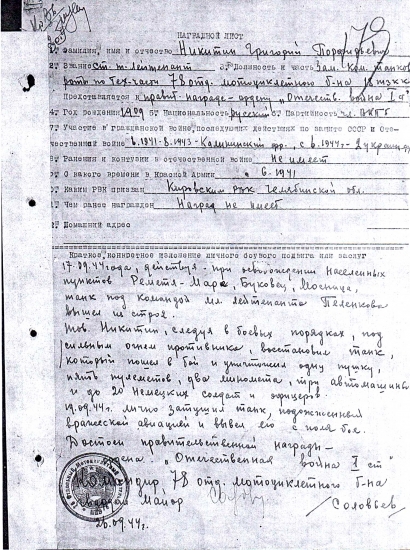 179
НАГРАДНОЙ ЛИСТ
1. Фамилия, имя и отчество Никитин Григорий Порфирьевич
2. Звание ст. т. лейтенант 3. Должность и часть Зам. ком. танков.
роты по тех. части 78 отд. мотоциклетного б-на 18 тзкк
Представляется к правит. награде - ордену "Отечеств. война I ст"
4. Год рождения 1909 5. Национальность русский 6. Партийность чл. ВКПб
7. Участие в гражданской войне, последующих действиях по защите СССР и Оте-
чественной войне 6.1941-8.1943 - Калининский фр., с 6.1944 - 2 украин. фр.
8. Ранения и контузии в отечественной войне не имеет
9. С какого времени в Красной Армии с 6.1941
10. Каким РВК призван Кировским рвк Челябинской обл.
11. Чем ранее награжден Наград не имеет
12. Домашний адрес
Краткое, конкретное изложение личного боевого подвига или заслуг
17.09.44 года, действуя при освобождении населенных
пунктов Реметя-Маре, Буковец, Мосница,
танк под командой мл. лейтенанта Пеленкова
вышел из строя.
Тов. Никитин, следуя в боевых порядках, под
сильным огнем противника, восстановил танк,
который пошел в бой и уничтожил одну пушку,
пять пулеметов, два миномета, три автомашины
и до 20 немецких солдат и офицеров.
19.09.44г. лично затушил танк, подожженный
вражеской авиацией и вывел его с поля боя.
Достоин правительственной награды -
ордена "Отечественная война I ст"
Командир 78 отд. мотоциклетного б-на
гвардии майор
/Соловьев
26.09.44г.